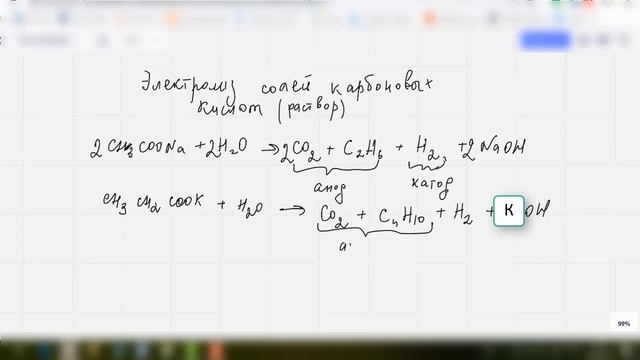 Электролиз солей карбоновых
кислот (раствор)
2CH₃COONa + 2H₂O → 2CO₂ + C₂H₆ + H₂ + 2NaOH
анод катод
CH₃CH₂COOK + H₂O → CO₂ + C₄H₁₀ + H₂ + KOH
а
99%